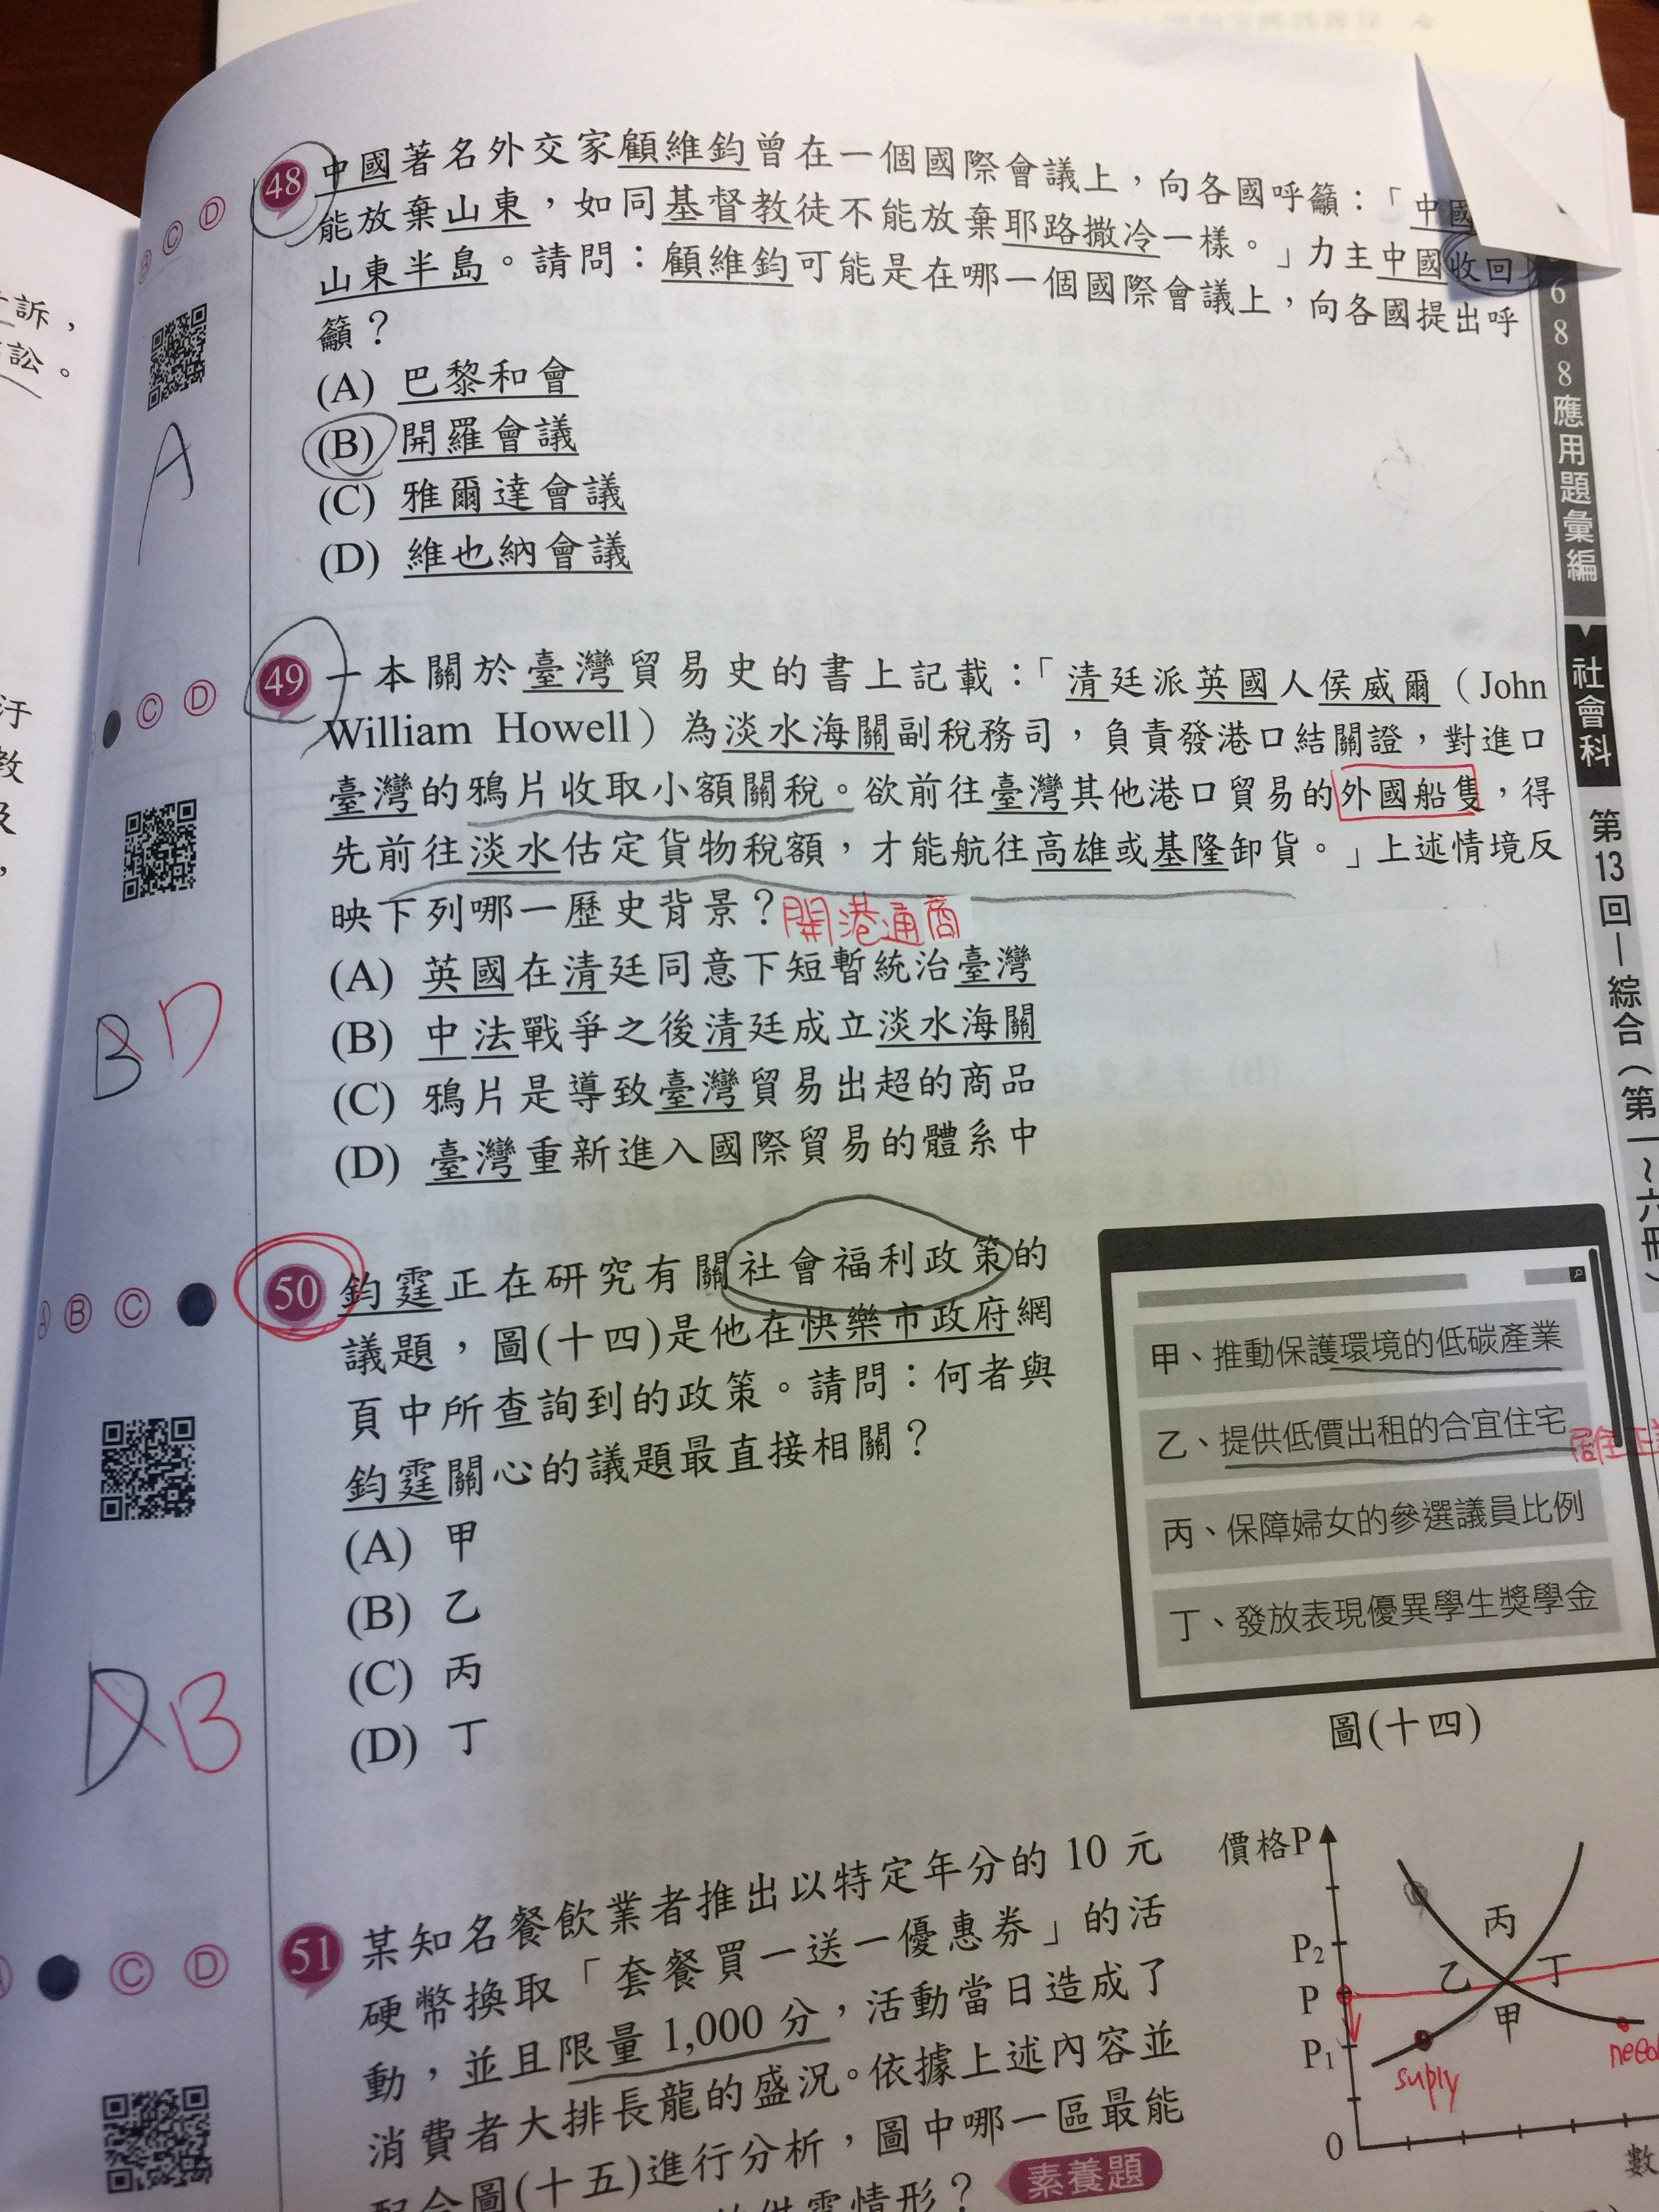 48 中國著名外交家顧維鈞曾在一個國際會議上，向各國呼籲：「中國
能放棄山東，如同基督教徒不能放棄耶路撒冷一樣。」力主中國收回
山東半島。請問：顧維鈞可能是在哪一個國際會議上，向各國提出呼
籲？
(A) 巴黎和會
(B) 開羅會議
(C) 雅爾達會議
(D) 維也納會議
B C D
A
49 一本關於臺灣貿易史的書上記載：「清廷派英國人侯威爾（John
William Howell）為淡水海關副稅務司，負責發港口結關證，對進口
臺灣的鴉片收取小額關稅。欲前往臺灣其他港口貿易的外國船隻，得
先前往淡水估定貨物稅額，才能航往高雄或基隆卸貨。」上述情境反
映下列哪一歷史背景？開港通商
(A) 英國在清廷同意下短暫統治臺灣
(B) 中法戰爭之後清廷成立淡水海關
(C) 鴉片是導致臺灣貿易出超的商品
(D) 臺灣重新進入國際貿易的體系中
C D
B D
50 鈞霆正在研究有關社會福利政策的
議題，圖(十四)是他在快樂市政府網
頁中所查詢到的政策。請問：何者與
鈞霆關心的議題最直接相關？
(A) 甲
(B) 乙
(C) 丙
(D) 丁
A B C
D B
甲、推動保護環境的低碳產業
乙、提供低價出租的合宜住宅
居住正
丙、保障婦女的參選議員比例
丁、發放表現優異學生獎學金
圖(十四)
51 某知名餐飲業者推出以特定年分的 10 元
硬幣換取「套餐買一送一優惠券」的活
動，並且限量 1,000 分，活動當日造成了
消費者大排長龍的盛況。依據上述內容並
配合圖(十五)進行分析，圖中哪一區最能
供需情形？ 素養題
C D
價格P
P2
P
P1
0
數
丙
乙
丁
甲
suply
need
6
8
8
應用題彙編
社會科
第13回—綜合（第一~六冊）
訴，
訟。
汙
教
及
，